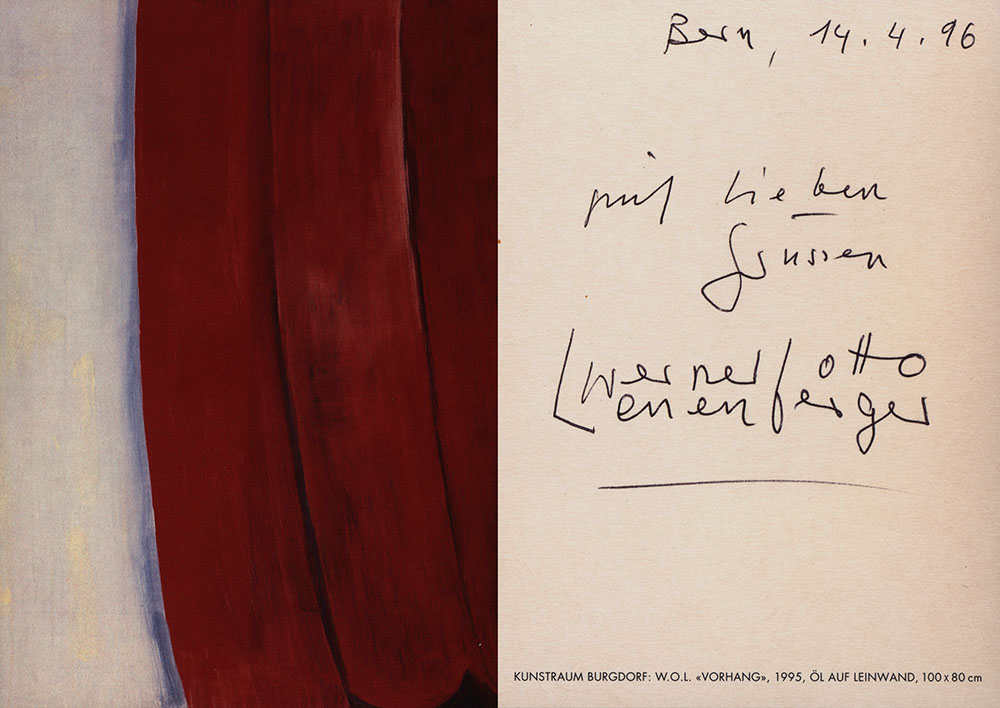 Bern, 14.4.96
mit lieben
Grüssen
werner otto
Leuenberger
KUNSTRAUM BURGDORF: W.O.L. «VORHANG», 1995, ÖL AUF LEINWAND, 100 x 80 cm